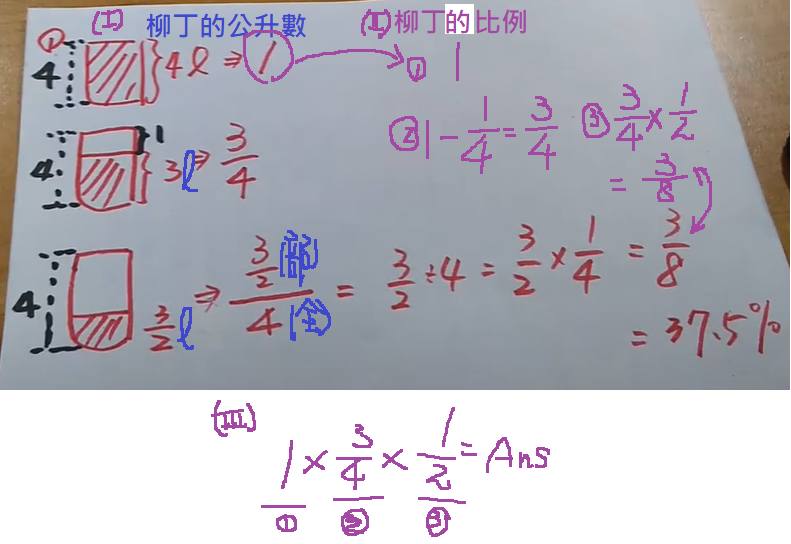 (I) 柳丁的公升數 (II) 柳丁的比例
① 4 4ℓ ⇒ 1 ① 1
4 1 3ℓ ⇒ 3/4 ② 1 - 1/4 = 3/4 ③ 3/4 × 1/2
= 3/8
4 3/2 ℓ ⇒ 3/2 (部) / 4 (全) = 3/2 ÷ 4 = 3/2 × 1/4 = 3/8
= 37.5%
(III)
1 × 3/4 × 1/2 = Ans
① ② ③